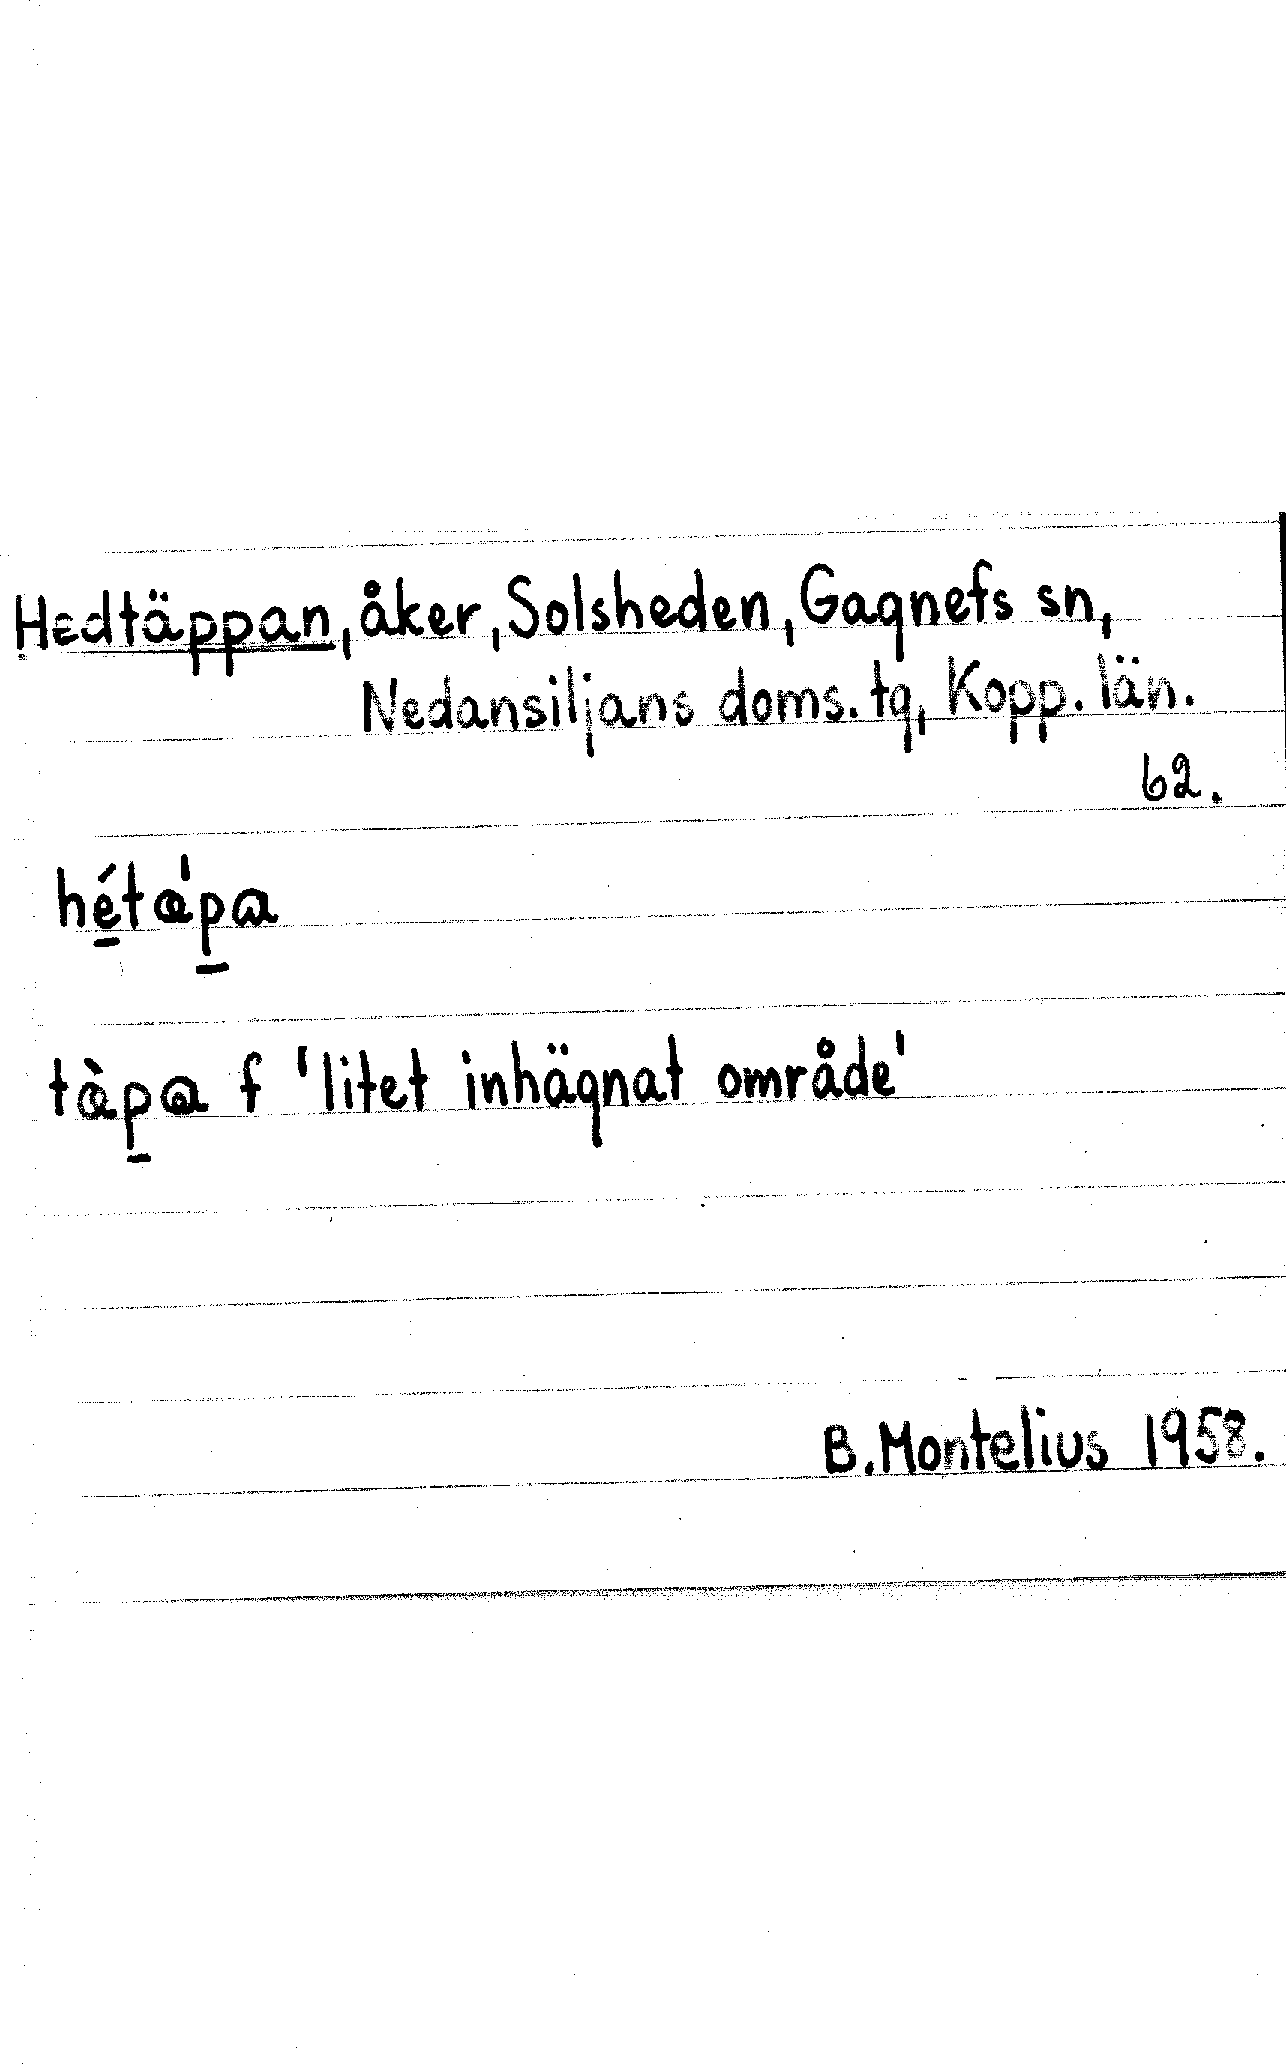 Hedtäppan, åker, Solsheden, Gagnefs sn,
Nedansiljans doms. tg, Kopp. län.
62.
hé̠tæ̍p̠ɑ
tæ̀p̠ɑ f 'litet inhägnat område'
B. Montelius 1958.